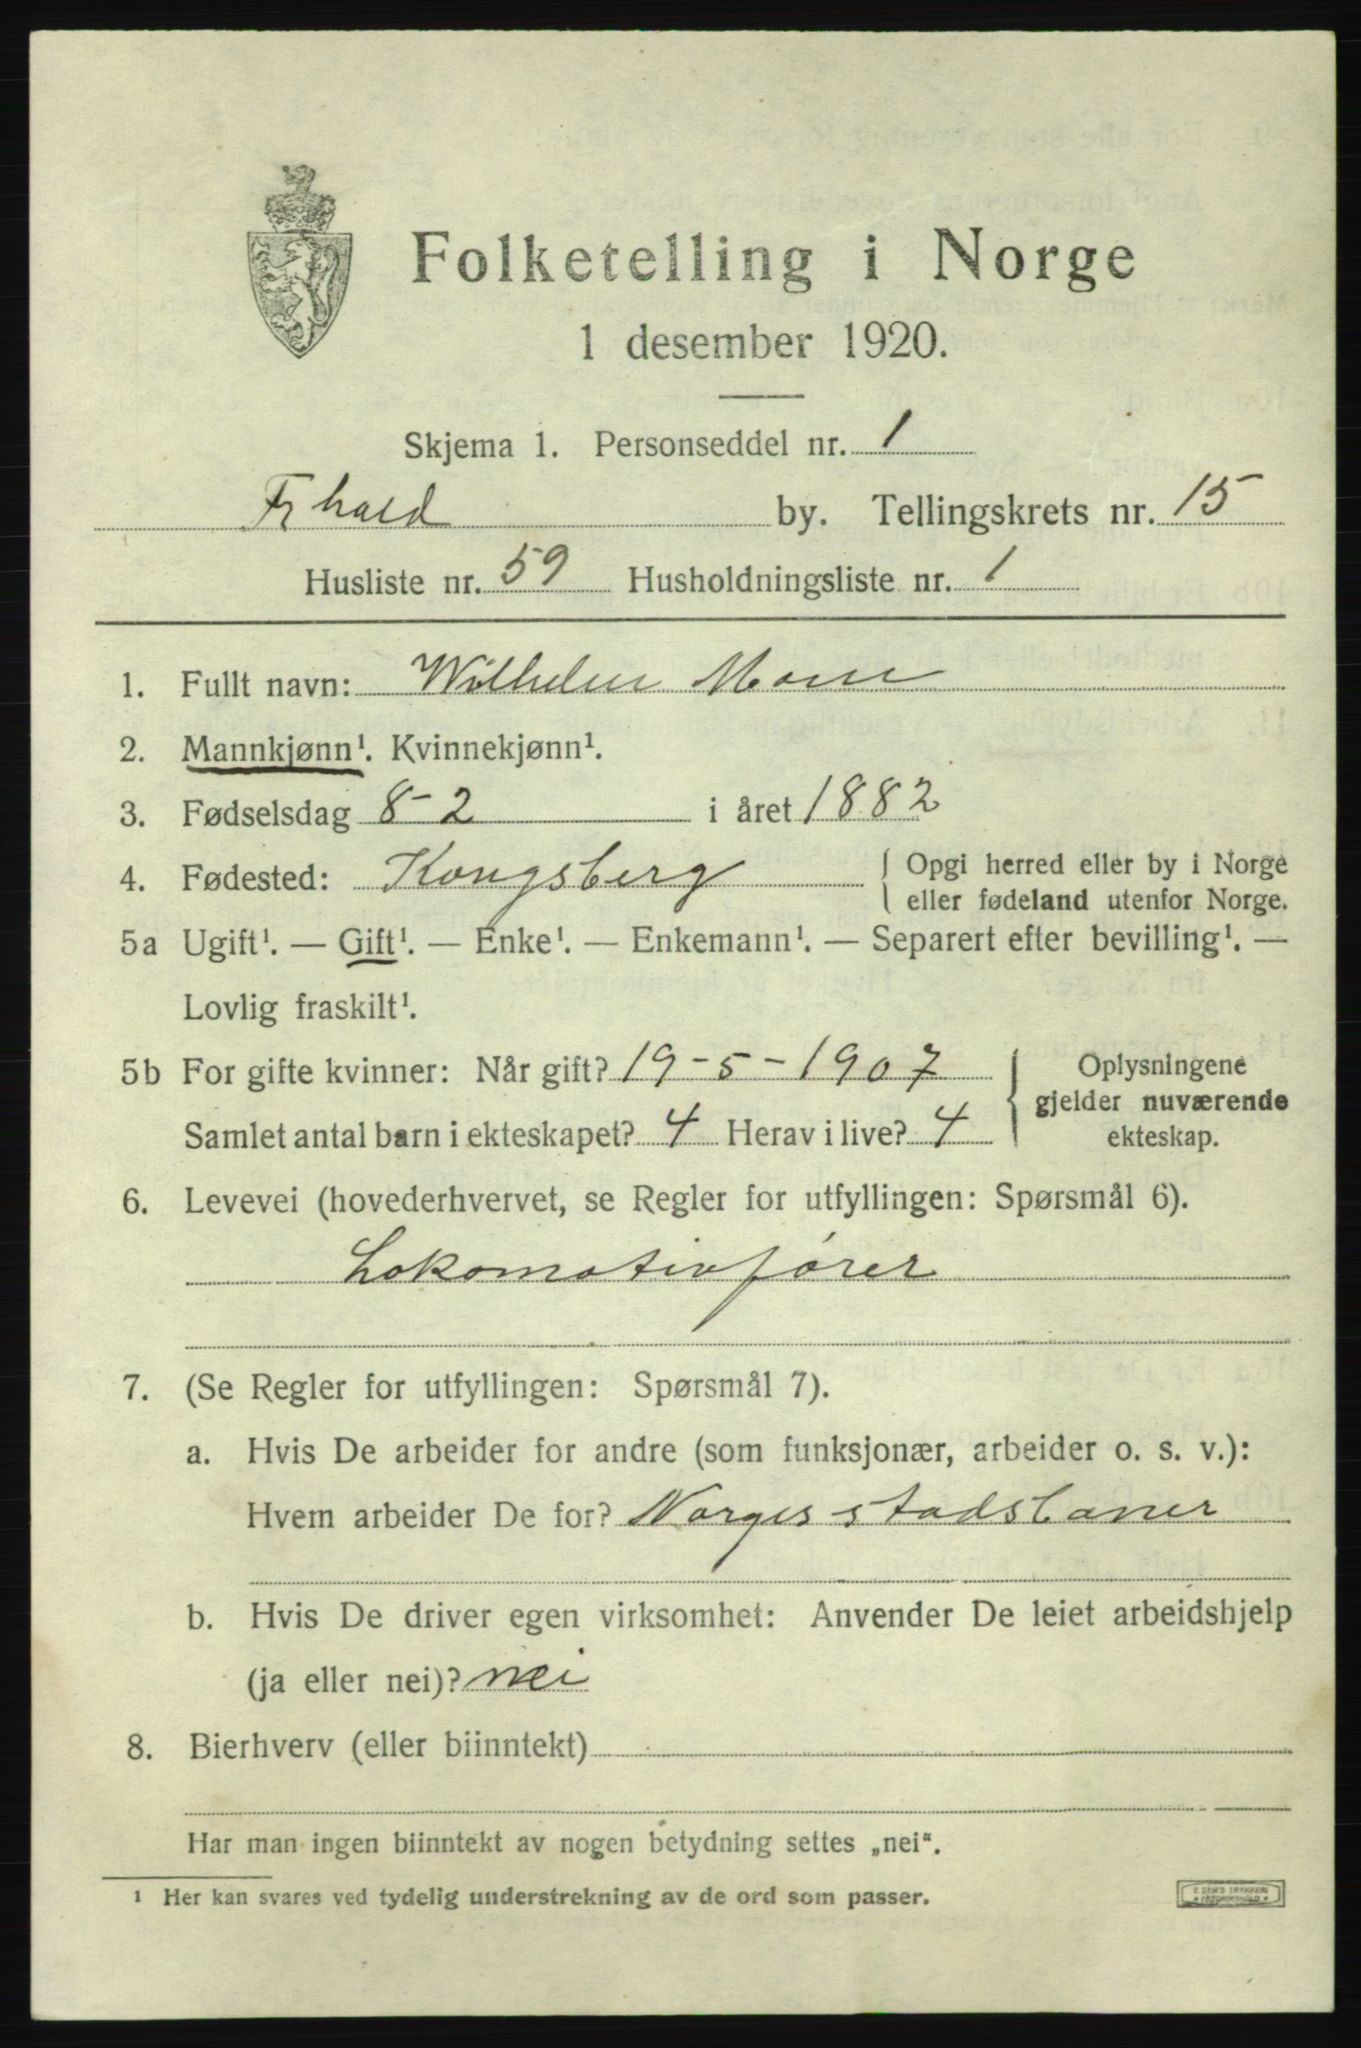 Folketelling i Norge
1 desember 1920.
Skjema 1. Personseddel nr. 1
Frhald by. Tellingskrets nr. 15
Husliste nr. 59 Husholdningsliste nr. 1
1. Fullt navn: Wilhelm
2. Mannkjønn¹. Kvinnekjønn¹.
3. Fødselsdag 8-2 i året 1882
4. Fødested: Kongsberg { Opgi herred eller by i Norge
eller fødeland utenfor Norge.
5a Ugift¹. — Gift¹. — Enke¹. — Enkemann¹. — Separert efter bevilling¹. —
Lovlig fraskilt¹.
5b For gifte kvinner: Når gift? 19-5-1907 { Oplysningene
gjelder nuværende
Samlet antal barn i ekteskapet? 4 Herav i live? 4 ekteskap.
6. Levevei (hovederhvervet, se Regler for utfyllingen: Spørsmål 6).
Lokomotivfører
7. (Se Regler for utfyllingen: Spørsmål 7).
a. Hvis De arbeider for andre (som funksjonær, arbeider o. s. v.):
Hvem arbeider De for? Norges stadsbaner
b. Hvis De driver egen virksomhet: Anvender De leiet arbeidshjelp
(ja eller nei)? nei
8. Bierhverv (eller biinntekt)
Har man ingen biinntekt av nogen betydning settes „nei“.
1 Her kan svares ved tydelig understrekning av de ord som passer.